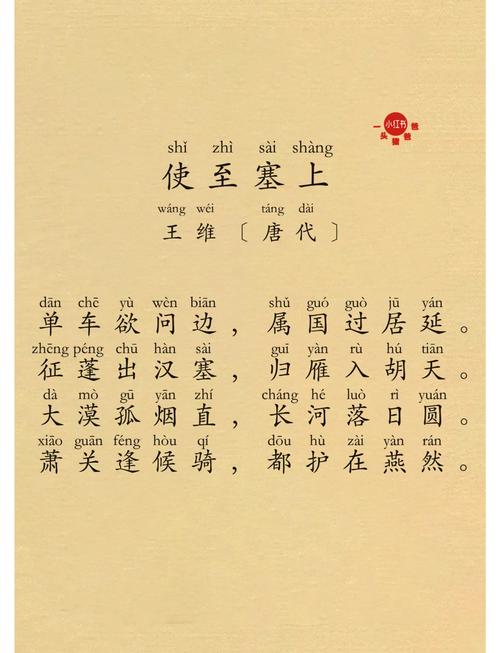 小红书
一头猪爸爸
shǐ zhì sài shàng
使至塞上
wáng wéi táng dài
王维〔唐代〕
dān chē yù wèn biān shǔ guó guò jū yán
单车欲问边，属国过居延。
zhēng péng chū hàn sài guī yàn rù hú tiān
征蓬出汉塞，归雁入胡天。
dà mò gū yān zhí cháng hé luò rì yuán
大漠孤烟直，长河落日圆。
xiāo guān féng hòu qí dōu hù zài yàn rán
萧关逢候骑，都护在燕然。